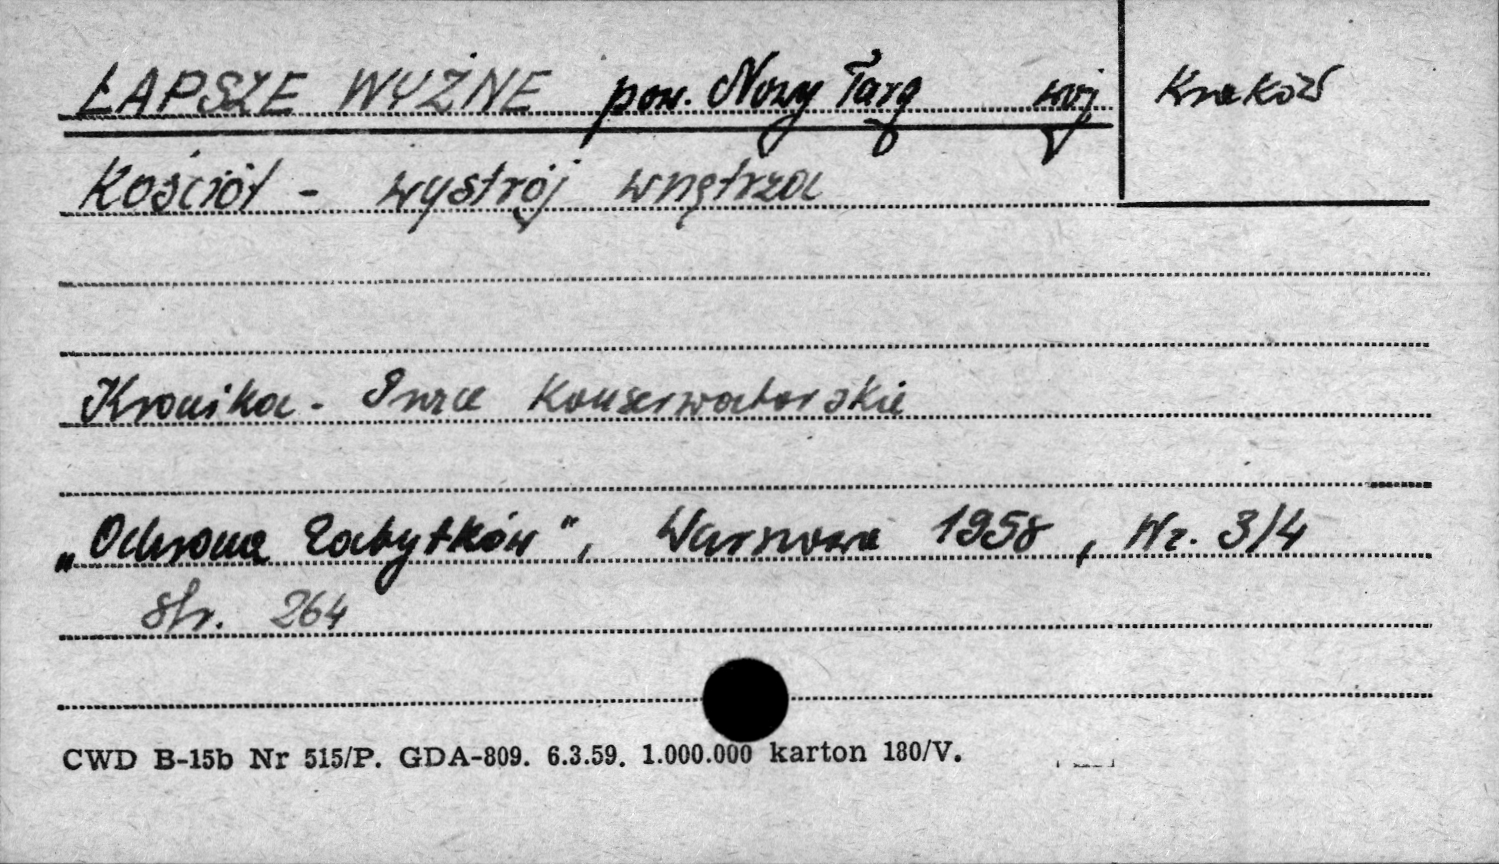 ŁAPSZE WYŻNE pow. Nowy Targ woj Kraków
Kościół - wystrój wnętrza
Kronika - Prace Konserwatorskie
„Ochrona Zabytków", Warszawa 1958, Nr. 3/4
str. 264
CWD B-15b Nr 515/P. GDA-809. 6.3.59. 1.000.000 karton 180/V.